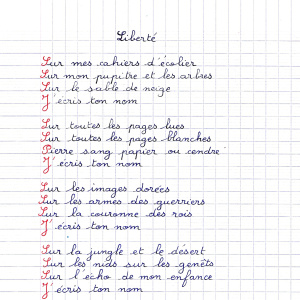 Liberté
Sur mes cahiers d'écolier
Sur mon pupitre et les arbres
Sur le sable de neige
J'écris ton nom
Sur toutes les pages lues
Sur toutes les pages blanches
Pierre sang papier ou cendre
J'écris ton nom
Sur les images dorées
Sur les armes des guerriers
Sur la couronne des rois
J'écris ton nom
Sur la jungle et le désert
Sur les nids sur les genêts
Sur l'écho de mon enfance
J'écris ton nom